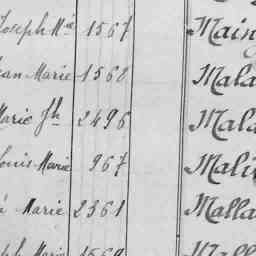 Joseph Mie 1567 Maing
Jean Marie 1568 Mala
Marie Jh 2496 Mala
Louis Marie 967 Mali
Marie 2361 Malla
Joseph Marie 1569 Mall